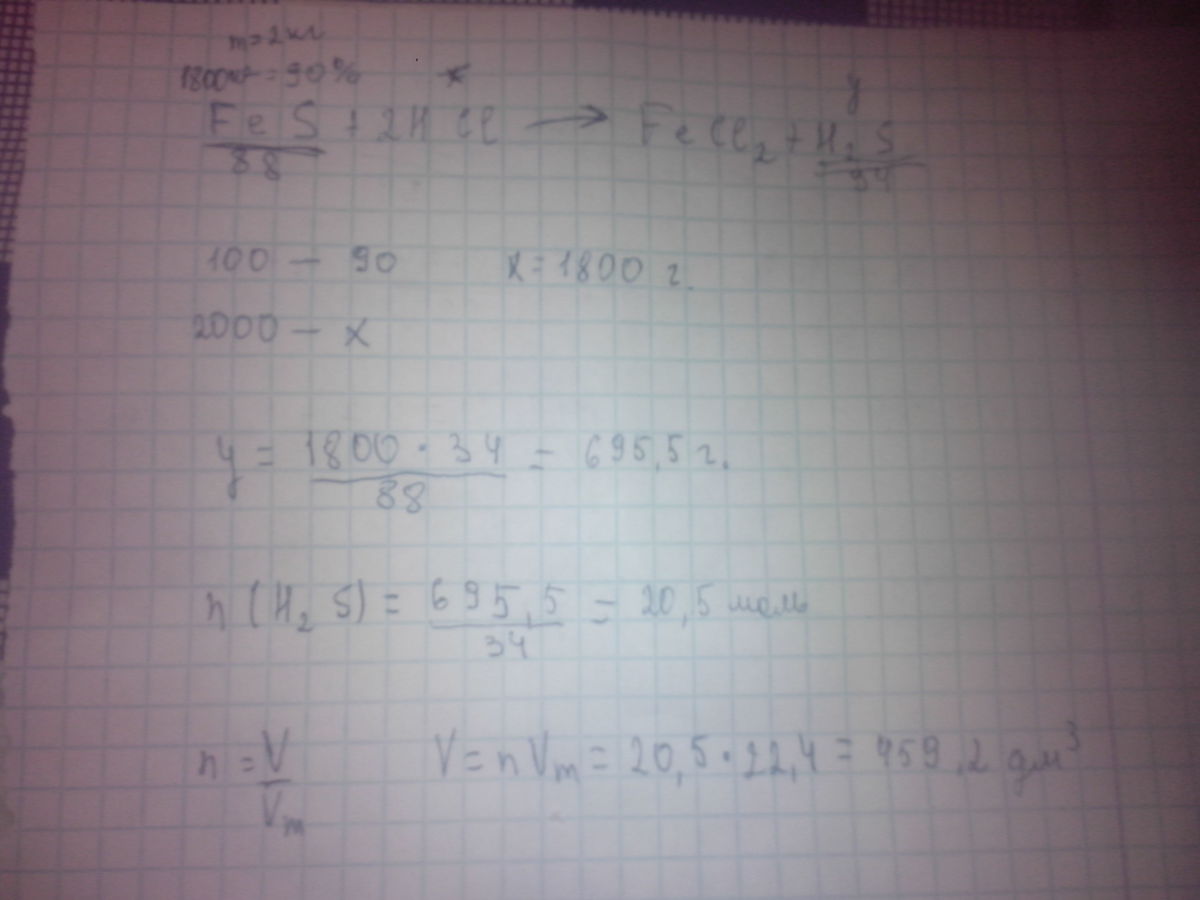 m=2кг
1800г=90% x y
FeS + 2HCl → FeCl₂ + H₂S
88 34
100 — 90 x=1800 г.
2000 — x
y = 1800 · 34 = 695,5 г.
88
n (H₂S) = 695,5 = 20,5 моль
34
n = V V = nVm = 20,5 · 22,4 = 459,2 дм³
Vm